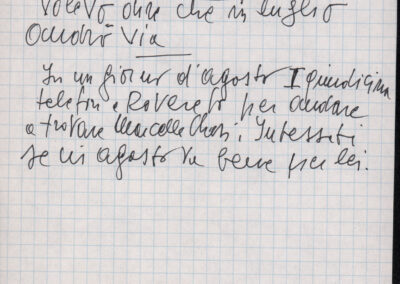 volevo dire che in luglio
andrò via
In un giorno d'agosto I quindicina
telefon a Rovereto per andare
a trovare, Interessati
se in agosto va bene per lei.